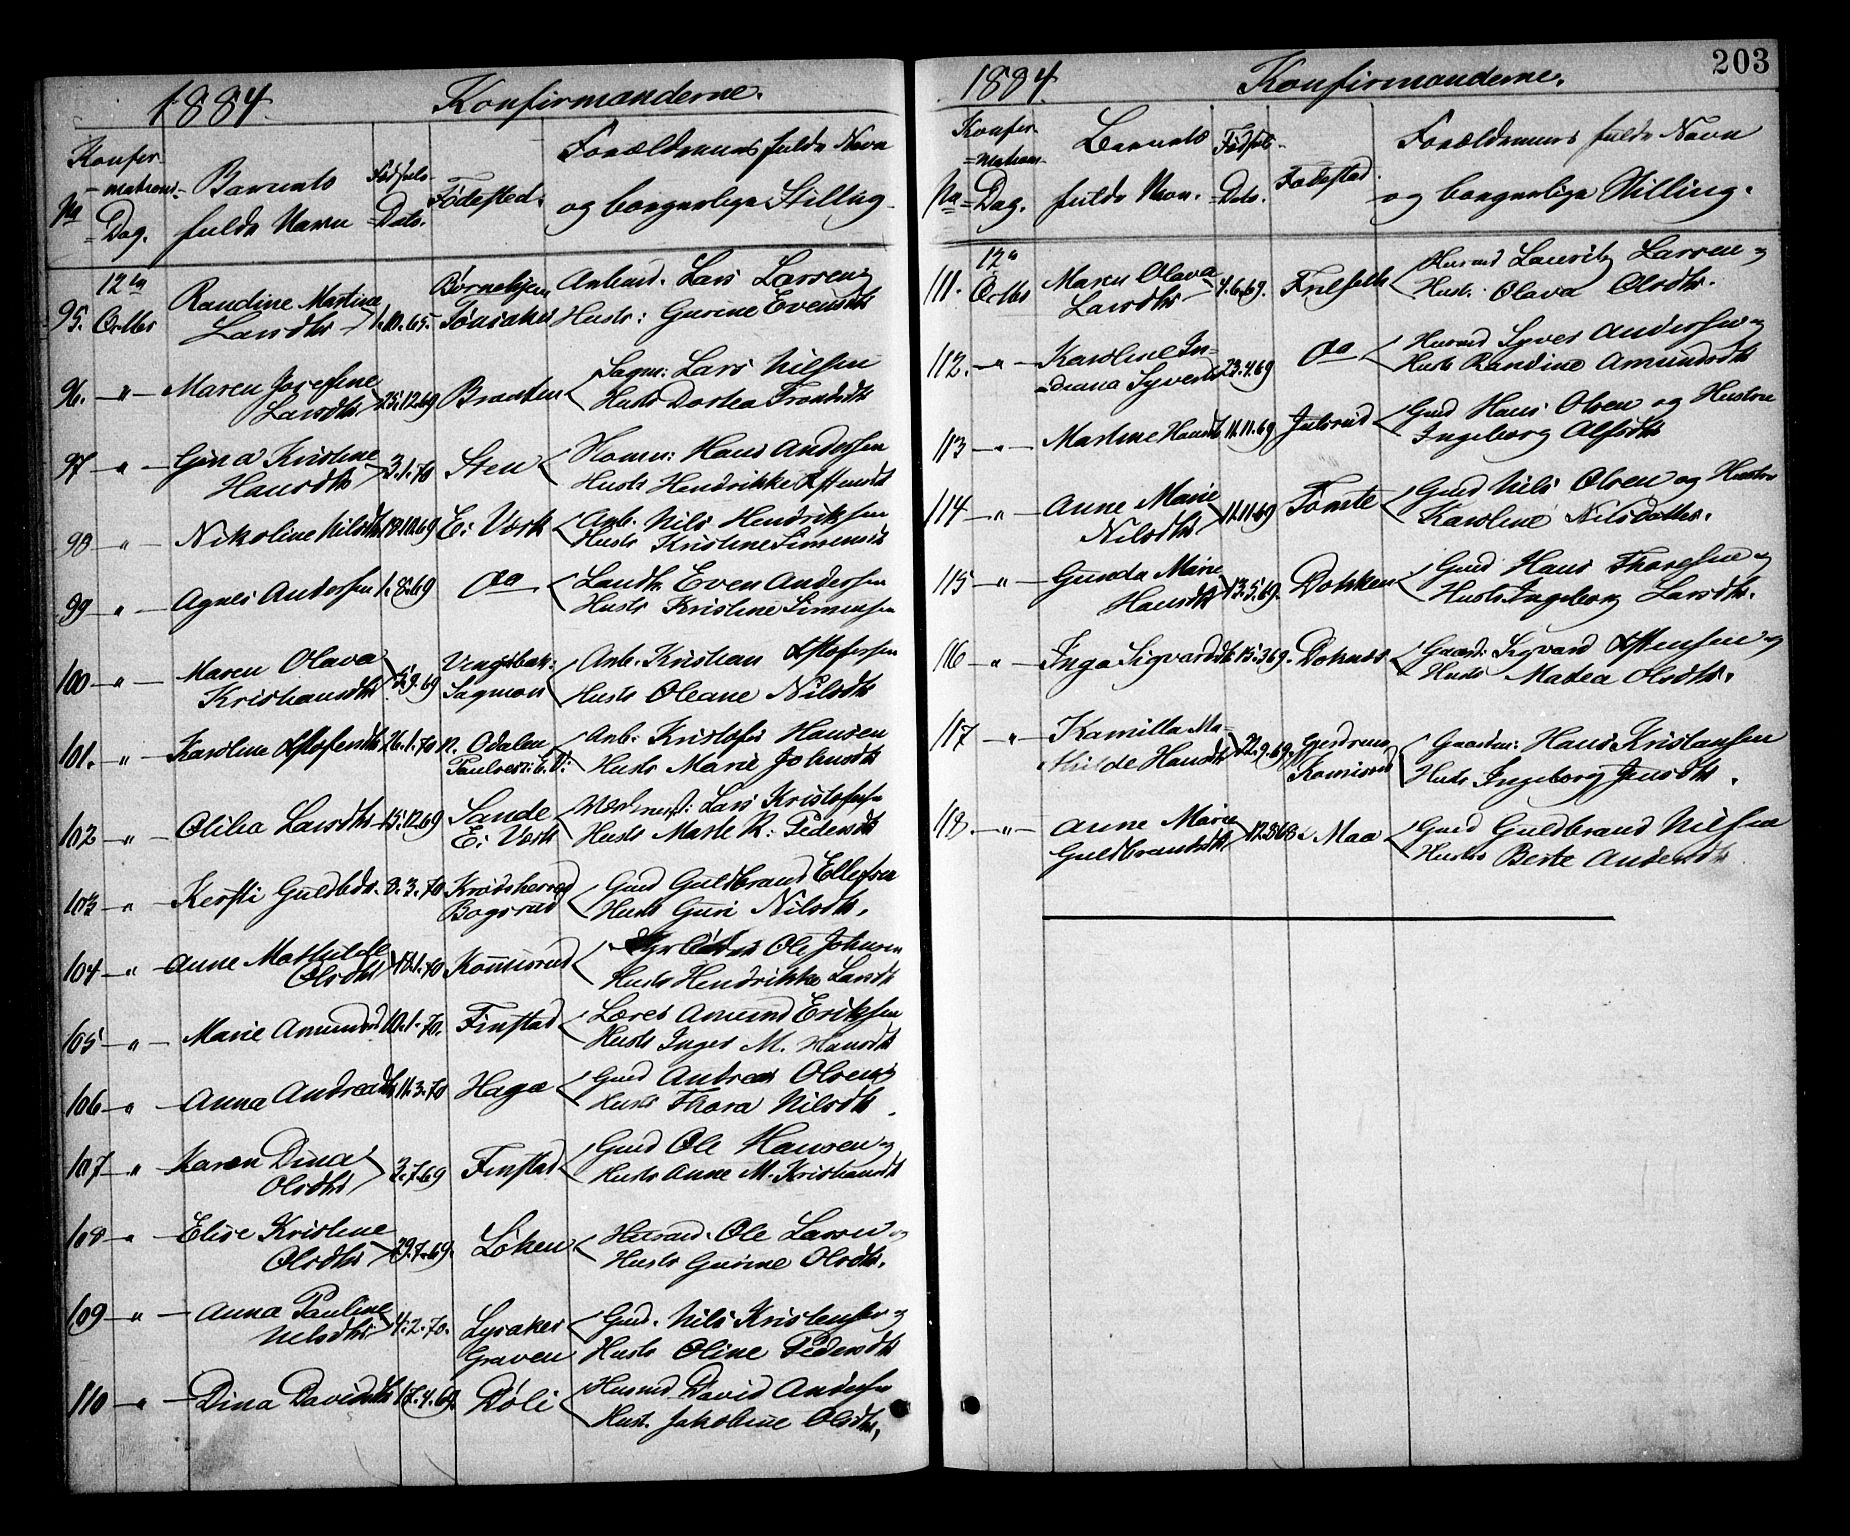 1884. Konfirmanderne.
Konfir-
=mations-
No =Dag.
Barnets
fulde Navn
Fødsels-
=Dato.
Fødested.
Forældrenes fulde Navn
og borgerlige Stilling.
12te
95. Octbr Randine Martine Larsdtr 1.10.65. Tønsaker
Arbmd. Lars Larsen og
Hustr: Gurine Evensdtr
96. " Maren Josefine Larsdtr 25.12.69 Braaten
Sagm: Lars Nilsen
Hustr Dorthea Trondsdtr
97 " Gina Kristine Hansdtr 3.1.70 Sten
Hans Andersen
Hustr Hendrikke
98 " Nikoline Nilsdtr 18.10.69 Ei: Værk
Arb. Nils Hendriksen
Hustr Kristine Simensdtr
99 " Agnes Andersen 1.8.69 do
Landh. Even Andersen
Hustr Kristine Simensen
100 " Maren Olava Kristiansdtr 5.9.69 Sagmon
Arb. Kristian Kristofersen
Hustr Oleane Nilsdtr
101. " Karoline Kristofersdtr 26.1.70 N. Odalen
Arb. Kristofer Hansen
Hustr Marie Johnsdtr
102 " Otilia Larsdtr 15.12.69 Sande
Ei: Værk
Lars Kristofersen
Hustr Marte K. Pedersdtr
103 " Kersti Guldbdr. 8.3.70 Krødsherred
Bogsrud
Gmd Guldbrand Ellefsen
Hustr Guri Nilsdtr.
104 " Anne Mathilde Olsdtr 18.1.70 Konnerud
Ole Johnsen
Hustr Hendrikke Larsdtr
105 " Marie Amundsd 10.1.70. Finstad
Lærer Amund Eriksen
Hustr Inger M. Hansdtr
106 " Anna Andreadtr 11.3.70 Haga
Gmd Andreas Olsen og
Hustr Thora Nilsdtr.
107 " Karen Dina Olsdtr 3.7.69 Finstad
Gmd Ole Hansen og
Hustr Anne M. Kristiansdtr
108 " Elise Kristine Olsdtr 29.7.69. Løken
Husmd. Ole Larsen og
Hustr Gurine Olsdtr.
109 " Anna Pauline Nilsdtr 4.2.70. Lysaker
Graven
Gmd. Nils Kristensen og
Hustr Oline Pedersdtr
110 " Dina Davidsdtr 17.4.69. Røli
Husmd David Andersen
Hust. Jakobine Olsdtr,
203
1884. Konfirmanderne.
Konfir-
=mations-
No =Dag.
Barnets
fulde Navn.
Fødsels-
=Dato.
Fødested.
Forældrenes fulde Navn
og borgerlige Stilling.
12te
111. Octbr Maren Olava Larsdtr 4.6.69. Frilseth
Husmd Lauritz Larsen og
Hustr: Olava Olsdtr.
112. " Karoline In-
=diana Syversdtr 23.4.69 do
Husmd Syver Andersen og
Hustr Randine Amundsdtr
113 " Martine Hansdtr 11.11.69 Julsrud
Gmd Hans Olsen og Hustru
Ingeborg Alfsdtr
114 " Anne Marie Nilsdtr 11.11.69 Tomte
Gmd Nils Olsen og Hustru
Karoline Nilsdatter.
115 " Gunda Marie Hansdtr 13.5.69. Dokken
Gmd Hans Thoresen og
Hustr Ingeborg Larsdtr.
116 " Inga Sigvardsdtr 15.3.69. Doknes
Gaard: Sigvard og
Hustr Mathea Olsdtr.
117 " Kamilla Ma-
thilde Hansdtr 22.9.69. Gjerdrum
Gaardm: Hans Kristiansen
Hustr Ingeborg Jensdtr.
118. " Anne Marie Guldbrandsdtr 12.8.68. Maa
Gmd Guldbrand Nilsen
Hustr Berte Andersdtr.